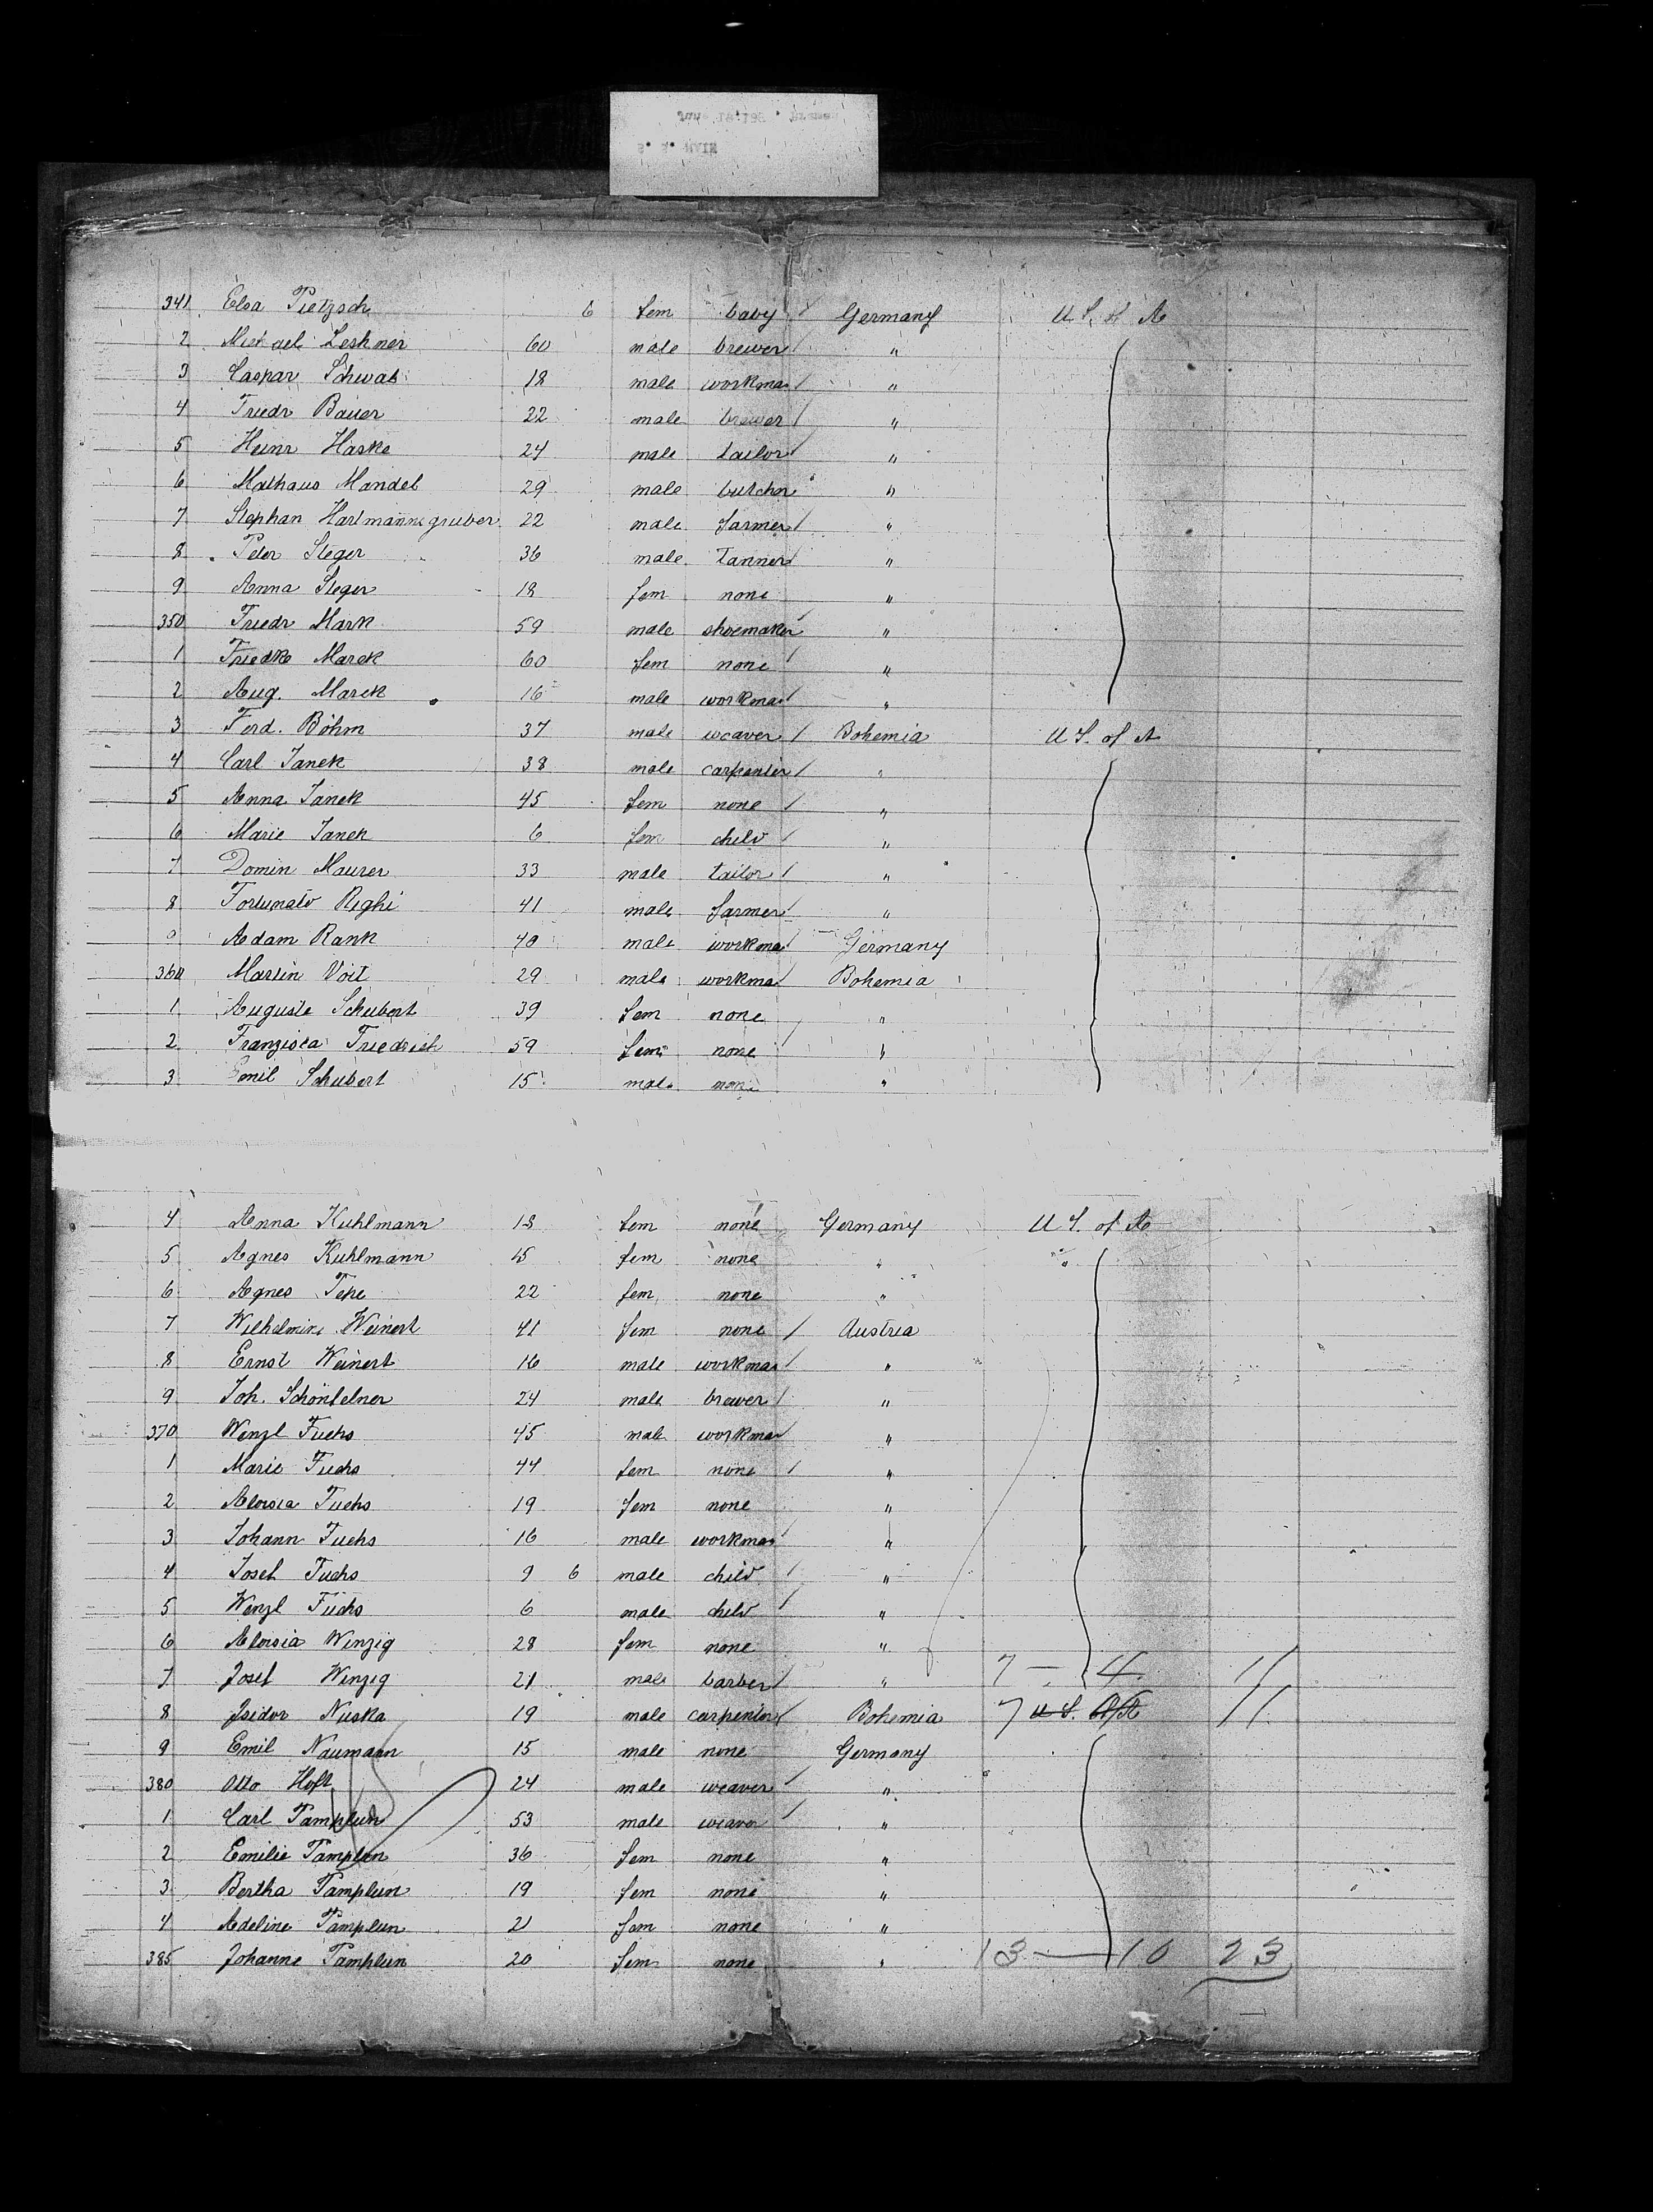 341 Elsa Pietzsch 6 fem baby / Germany U S. of A
2 Michael Leshner 60 male brewer / "
3 Caspar Schwab 18 male workman / "
4 Friedr Bauer 22 male brewer / "
5 Heinr Haske 24 male tailor / "
6 Mathaus Mandel 29 male butcher "
7 Stephan Hartmannsgruber 22 male farmer / "
8 Peter Steger 36 male tanner / "
9 Anna Steger 18 fem none "
350 Friedr Mark 59 male shoemaker / "
1 Friedke Marek 60 fem none / "
2 Aug. Marek 16 male workman / "
3 Ferd. Böhm 37 male weaver / Bohemia U S. of A
4 Carl Janek 38 male carpenter / "
5 Anna Janek 45 fem none / "
6 Marie Janek 6 fem child / "
7 Domin Maurer 33 male tailor / "
8 Fortunato Righi 41 male farmer / "
9 Adam Rank 40 male workman / Germany
360 Martin Voit 29 male workman / Bohemia
1 Auguste Schubert 39 fem none "
2 Franzisca Friedrich 59 fem none "
3 Emil Schubert 15 male none "
4 Anna Kuhlmann 18 fem none Germany U S. of A
5 Agnes Kuhlmann 15 fem none " "
6 Agnes Tepe 22 fem none "
7 Wilhelmine Weinert 41 fem none / Austria
8 Ernst Weinert 16 male workman / "
9 Joh. 24 male brewer / "
370 Wenzl Fuchs 45 male workman "
1 Marie Fuchs 44 fem none / "
2 Aloisia Fuchs 19 fem none "
3 Johann Fuchs 16 male workman / "
4 Josef Fuchs 9 6 male child / "
5 Wenzl Fuchs 6 male child / "
6 Aloisia Winzig 28 fem none "
7 Josef Winzig 21 male barber / " 7 — 4 11
8 Isidor Nuska 19 male carpenter / Bohemia 7 U S. of A 11
9 Emil Naumann 15 male none Germany
380 Otto Hoft 24 male weaver / "
1 Carl Tamplun 53 male weaver / "
2 Emilie Tamplun 36 fem none "
3 Bertha Tamplun 19 fem none "
4 Adeline Tamplun 21 fem none "
385 Johanne Tamplun 20 fem none " 13 — 10 23